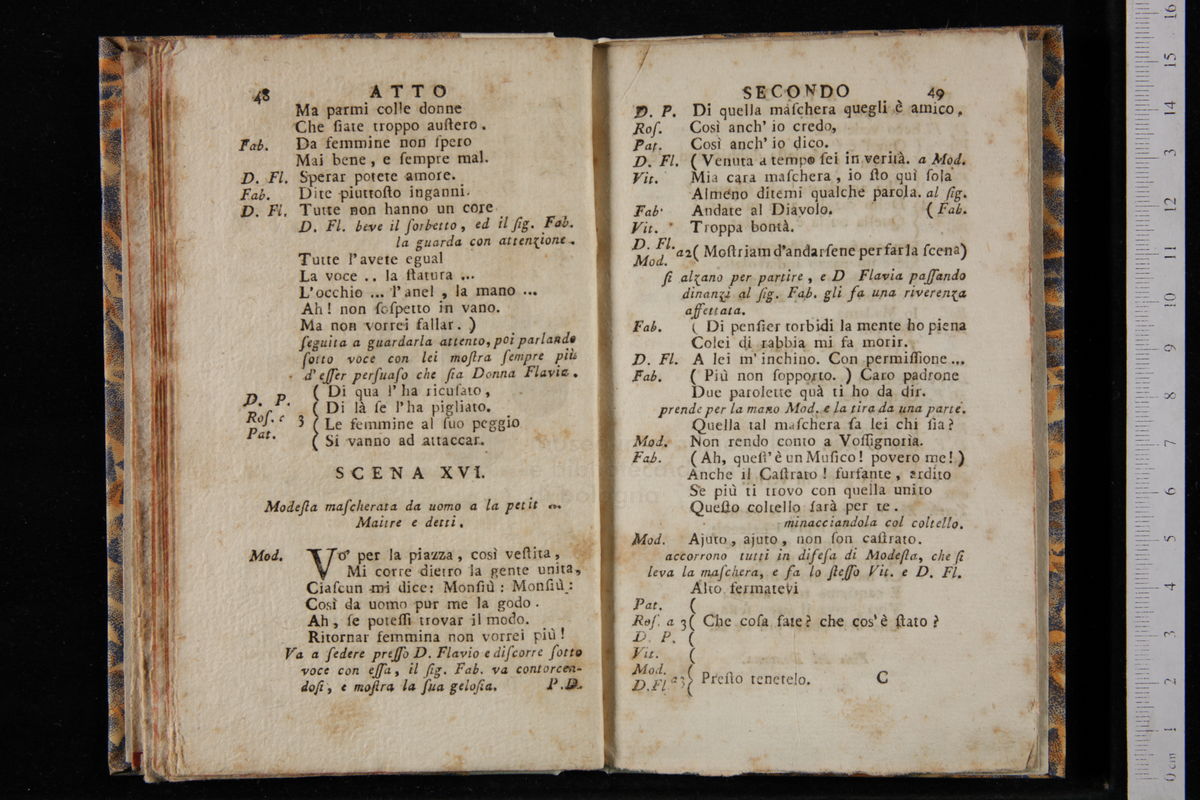 48 ATTO
Ma parmi colle donne
Che ſiate troppo auſtero.
Fab. Da femmine non ſpero
Mai bene, e ſempre mal.
D. Fl. Sperar potete amore.
Fab. Dite piuttoſto inganni.
D. Fl. Tutte non hanno un core
D. Fl. beve il ſorbetto, ed il ſig. Fab.
la guarda con attenzione.
Tutte l'avete egual
La voce .. la ſtatura ...
L'occhio ... l'anel, la mano ...
Ah! non ſoſpetto in vano.
Ma non vorrei fallar. )
ſeguita a guardarla attento, poi parlando
ſotto voce con lei moſtra ſempre più
d'eſſer perſuaſo che ſia Donna Flavia.
D. P. ( Di qua l'ha ricuſato,
Roſ. e 3 ( Di là ſe l'ha pigliato.
Pat. ( Le femmine al ſuo peggio
( Si vanno ad attaccar.
SCENA XVI.
Modeſta maſcherata da uomo a la petit
Maitre e detti.
Mod. Vo' per la piazza, così veſtita,
Mi corre dietro la gente unita,
Ciaſcun mi dice: Monſiù: Monſiù:
Così da uomo pur me la godo.
Ah, ſe poteſſi trovar il modo.
Ritornar femmina non vorrei più!
Va a ſedere preſſo D. Flavio e diſcorre ſotto
voce con eſſa, il ſig. Fab. va contorcen-
doſi, e moſtra la ſua geloſia. P.D.
SECONDO 49
D. P. Di quella maſchera quegli è amico,
Roſ. Così anch' io credo,
Pat. Così anch' io dico.
D. Fl. ( Venuta a tempo ſei in verità. a Mod.
Vit. Mia cara maſchera, io ſto quì ſola
Almeno ditemi qualche parola. al ſig.
Fab. Andate al Diavolo. ( Fab.
Vit. Troppa bontà.
D. Fl.
Mod. a2 ( Moſtriam d'andarſene per far la ſcena)
ſi alzano per partire, e D Flavia paſſando
dinanzi al ſig. Fab. gli fa una riverenza
affettata.
Fab. ( Di penſier torbidi la mente ho piena
Colei di rabbia mi fa morir.
D. Fl. A lei m'inchino. Con permiſſione ...
Fab. ( Più non ſopporto. ) Caro padrone
Due parolette quà ti ho da dir.
prende per la mano Mod. e la tira da una parte.
Quella tal maſchera ſa lei chi ſia?
Mod. Non rendo conto a Voſſignoria.
Fab. ( Ah, queſt'è un Muſico! povero me! )
Anche il Caſtrato! furfante, ardito
Se più ti trovo con quella unito
Queſto coltello ſarà per te.
minacciandola col coltello.
Mod. Ajuto, ajuto, non ſon caſtrato.
accorrono tutti in difeſa di Modeſta, che ſi
leva la maſchera, e fa lo ſteſſo Vit. e D. Fl.
Alto fermatevi
Pat. (
Roſ. a 3 ( Che coſa fate? che cos'è ſtato?
D. P. (
Vit. (
Mod. a3 ( Preſto tenetelo. C
D. Fl (